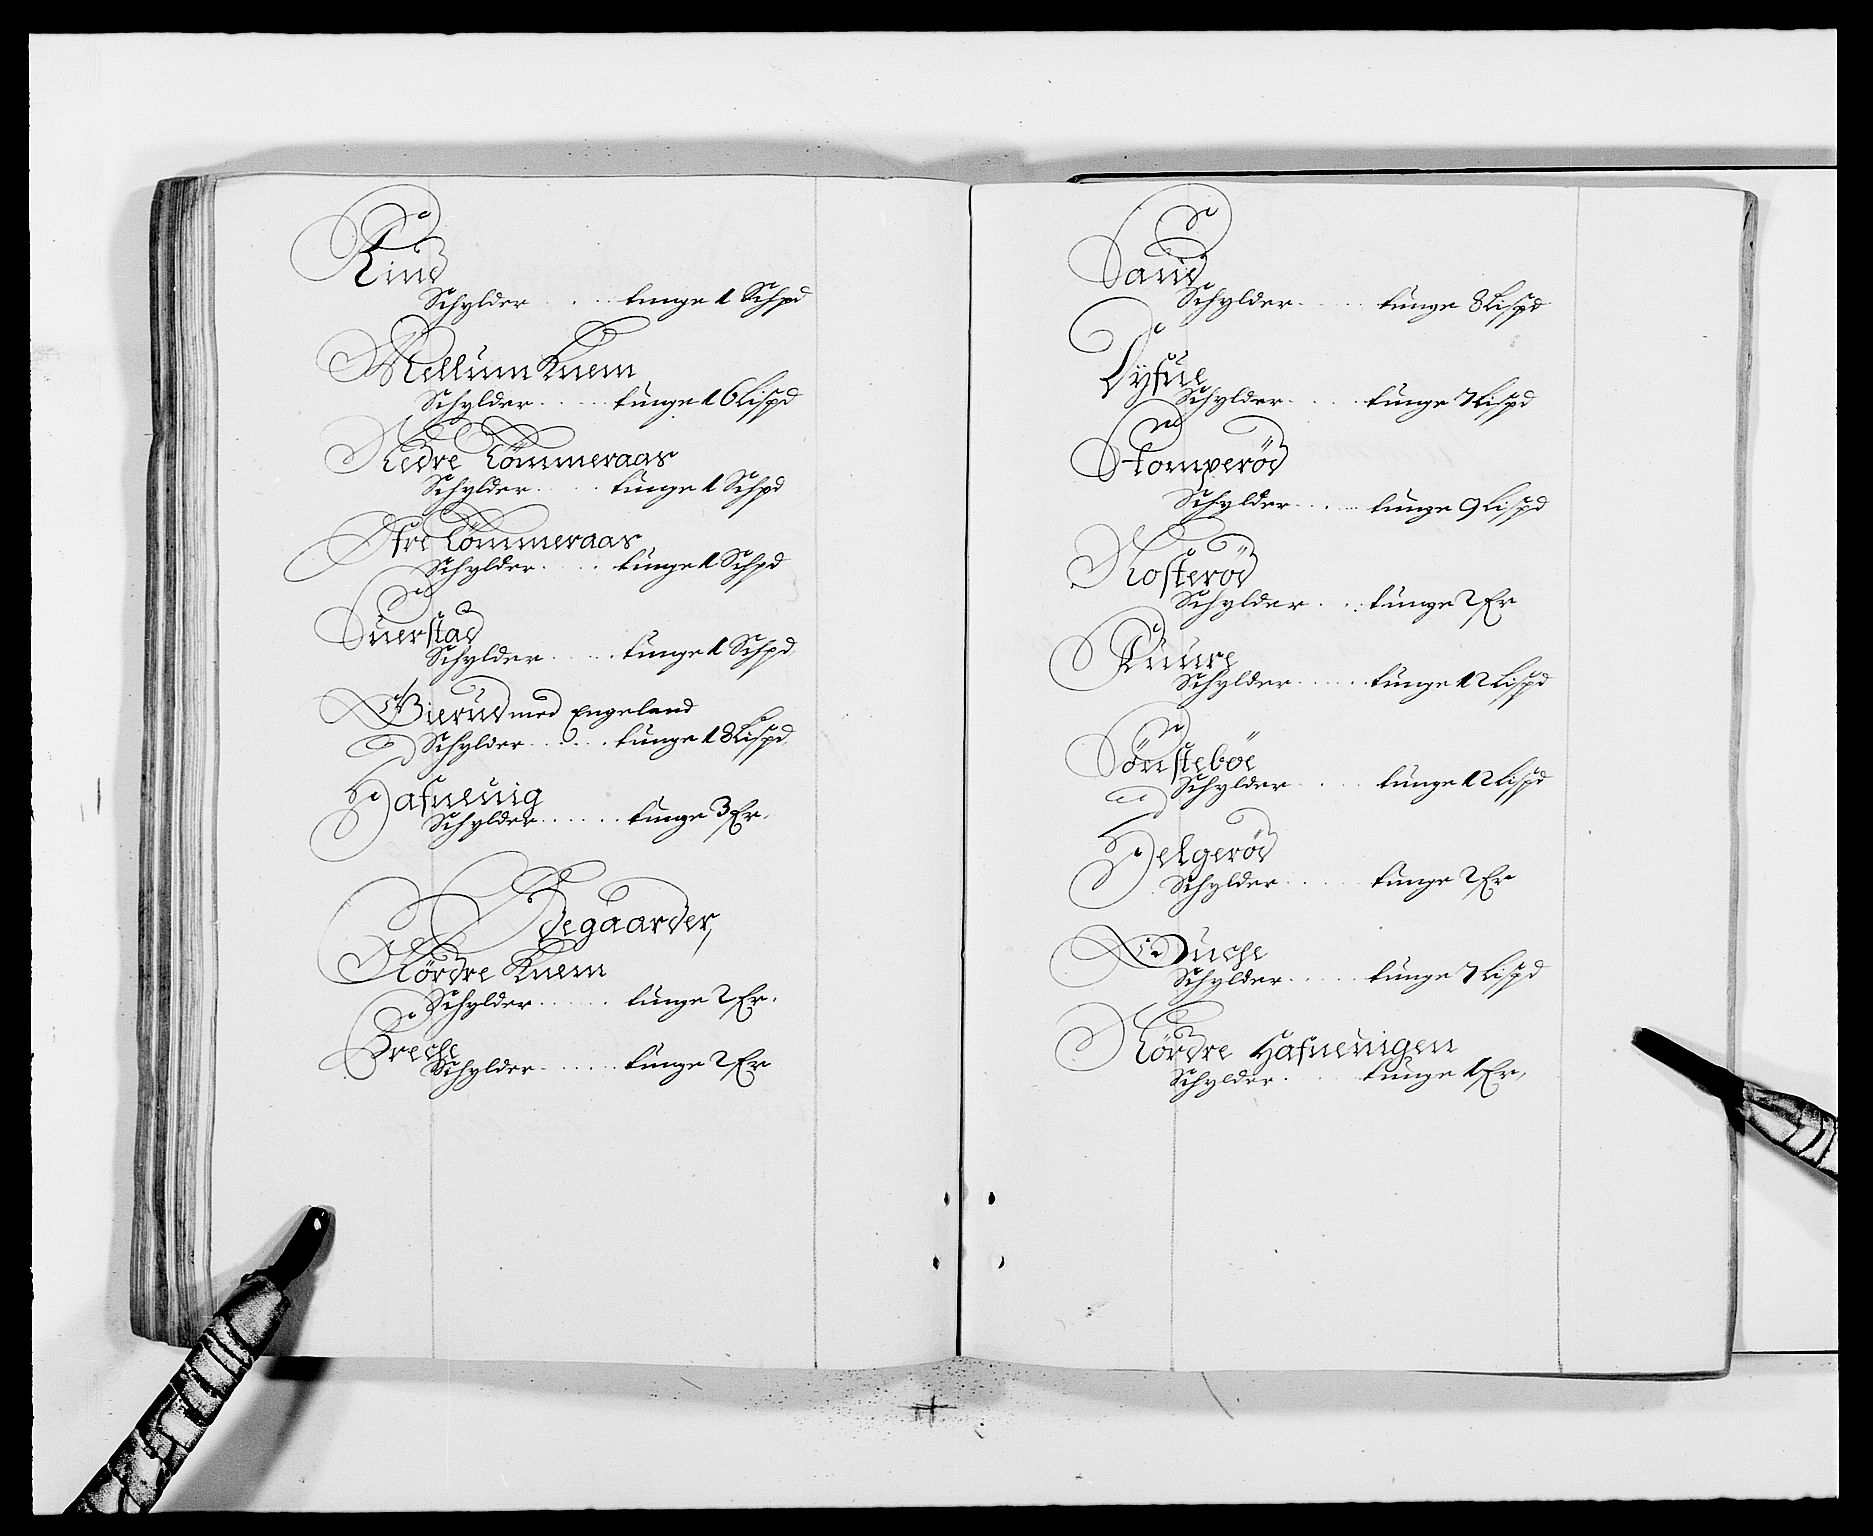 Rind
Schylder . . . . tunge 1 Schpd
Mellum Knem
Schylder . . . . . tunge 16 Lispd
Nedre Tømmeraas
Schylder . . . . tunge 1 Schpd
Øfre Tømmeraas
Schylder . . . . tunge 1 Schpd
Suerstad
Schylder . . . . . tunge 1 Schpd
Bierud med Engeland
Schylder . . . . . tunge 18 Lispd
Hafneuig
Schylder . . . . . . tunge 3 Er.
Ødegaarder,
Nørdre Knem
Schylder . . . . . tunge 2 Er.
Breche
Schylder . . . . . . tunge 2 Er
Sand
Schylder . . . . tunge 8 Lispd
Schylder . . . . . tunge 7 Lispd
Stomperød
Schylder . . . . . tunge 9 Lispd
Kosterød
Schylder . . . tunge 2 Er
Schylder . . . . . . tunge 12 Lispd
Sønstebøe
Schylder . . . . tunge 12 Lispd
Helgerød
Schylder . . . . . tunge 2 Er
Schylder . . . . . tunge 7 Lispd
Nørdre Hafneuigen
Schylder . . . . tunge 1 Er,